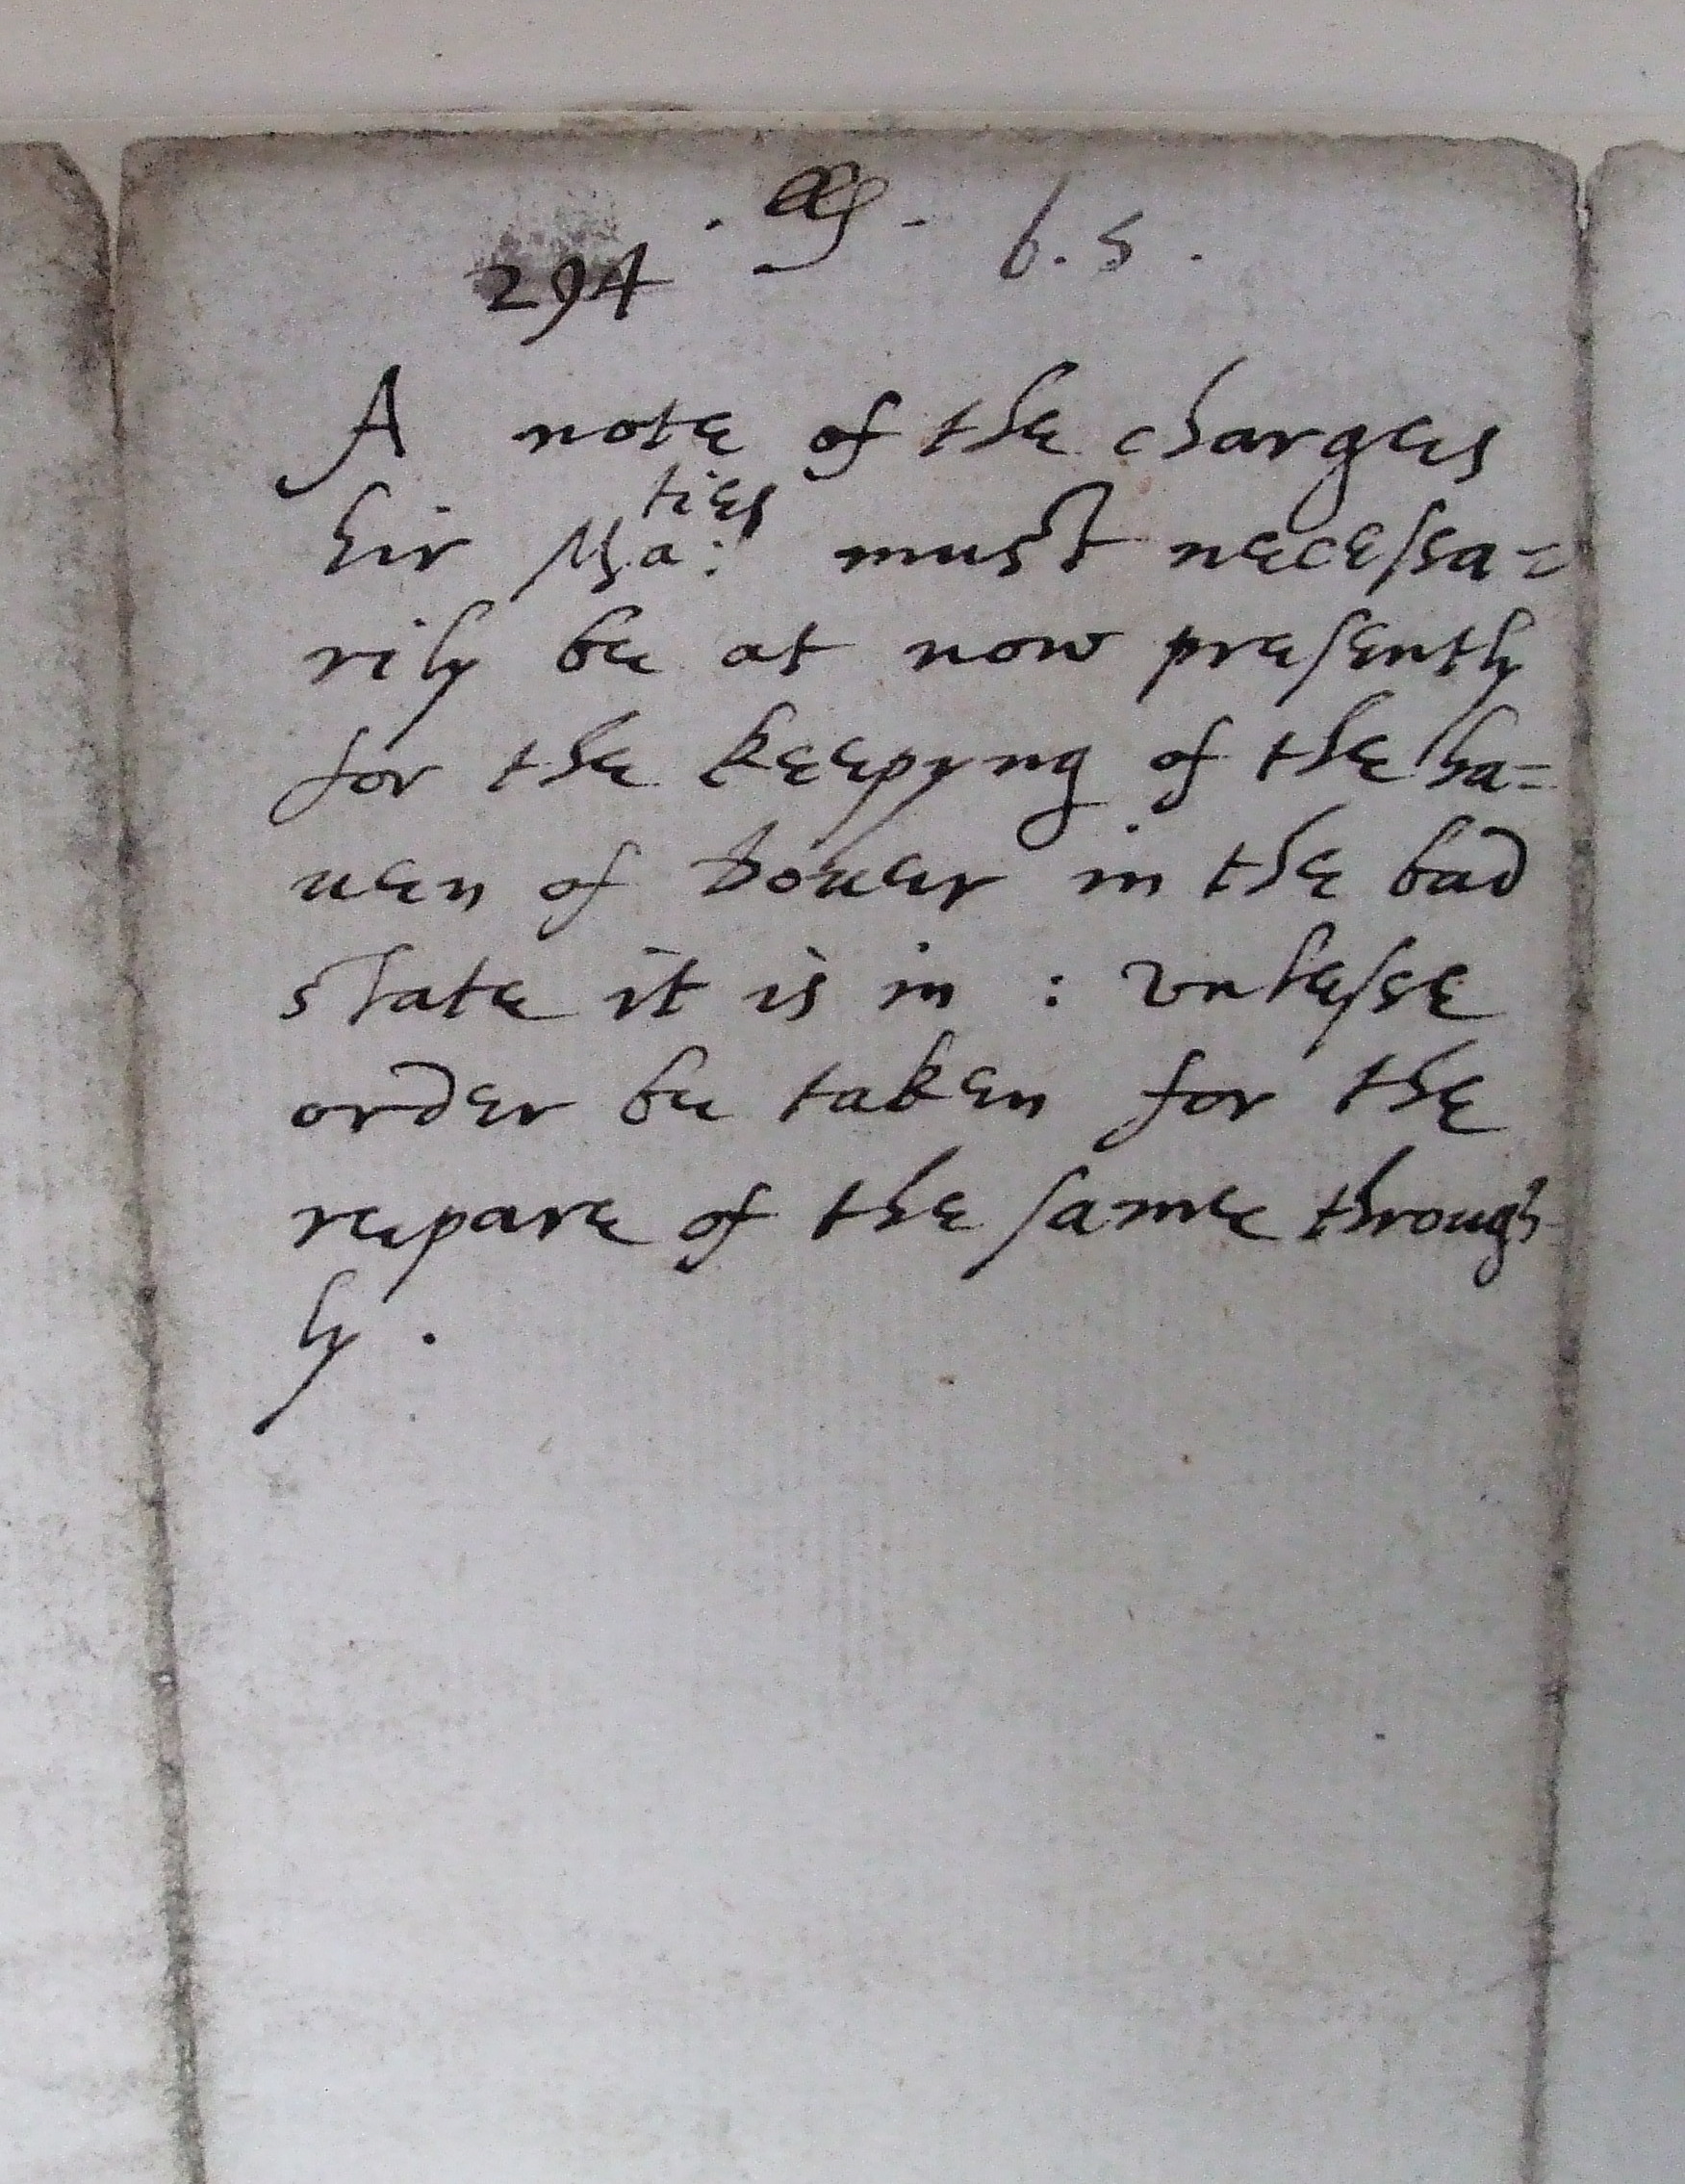 b. 5.
294
A note of the charges
hir Ma:ties must necessa=
rily be at now presently
for the keepyng of the ha=
uen of Douer in the bad
state it is in : vnlesse
order be taken for the
repare of the same through
ly .